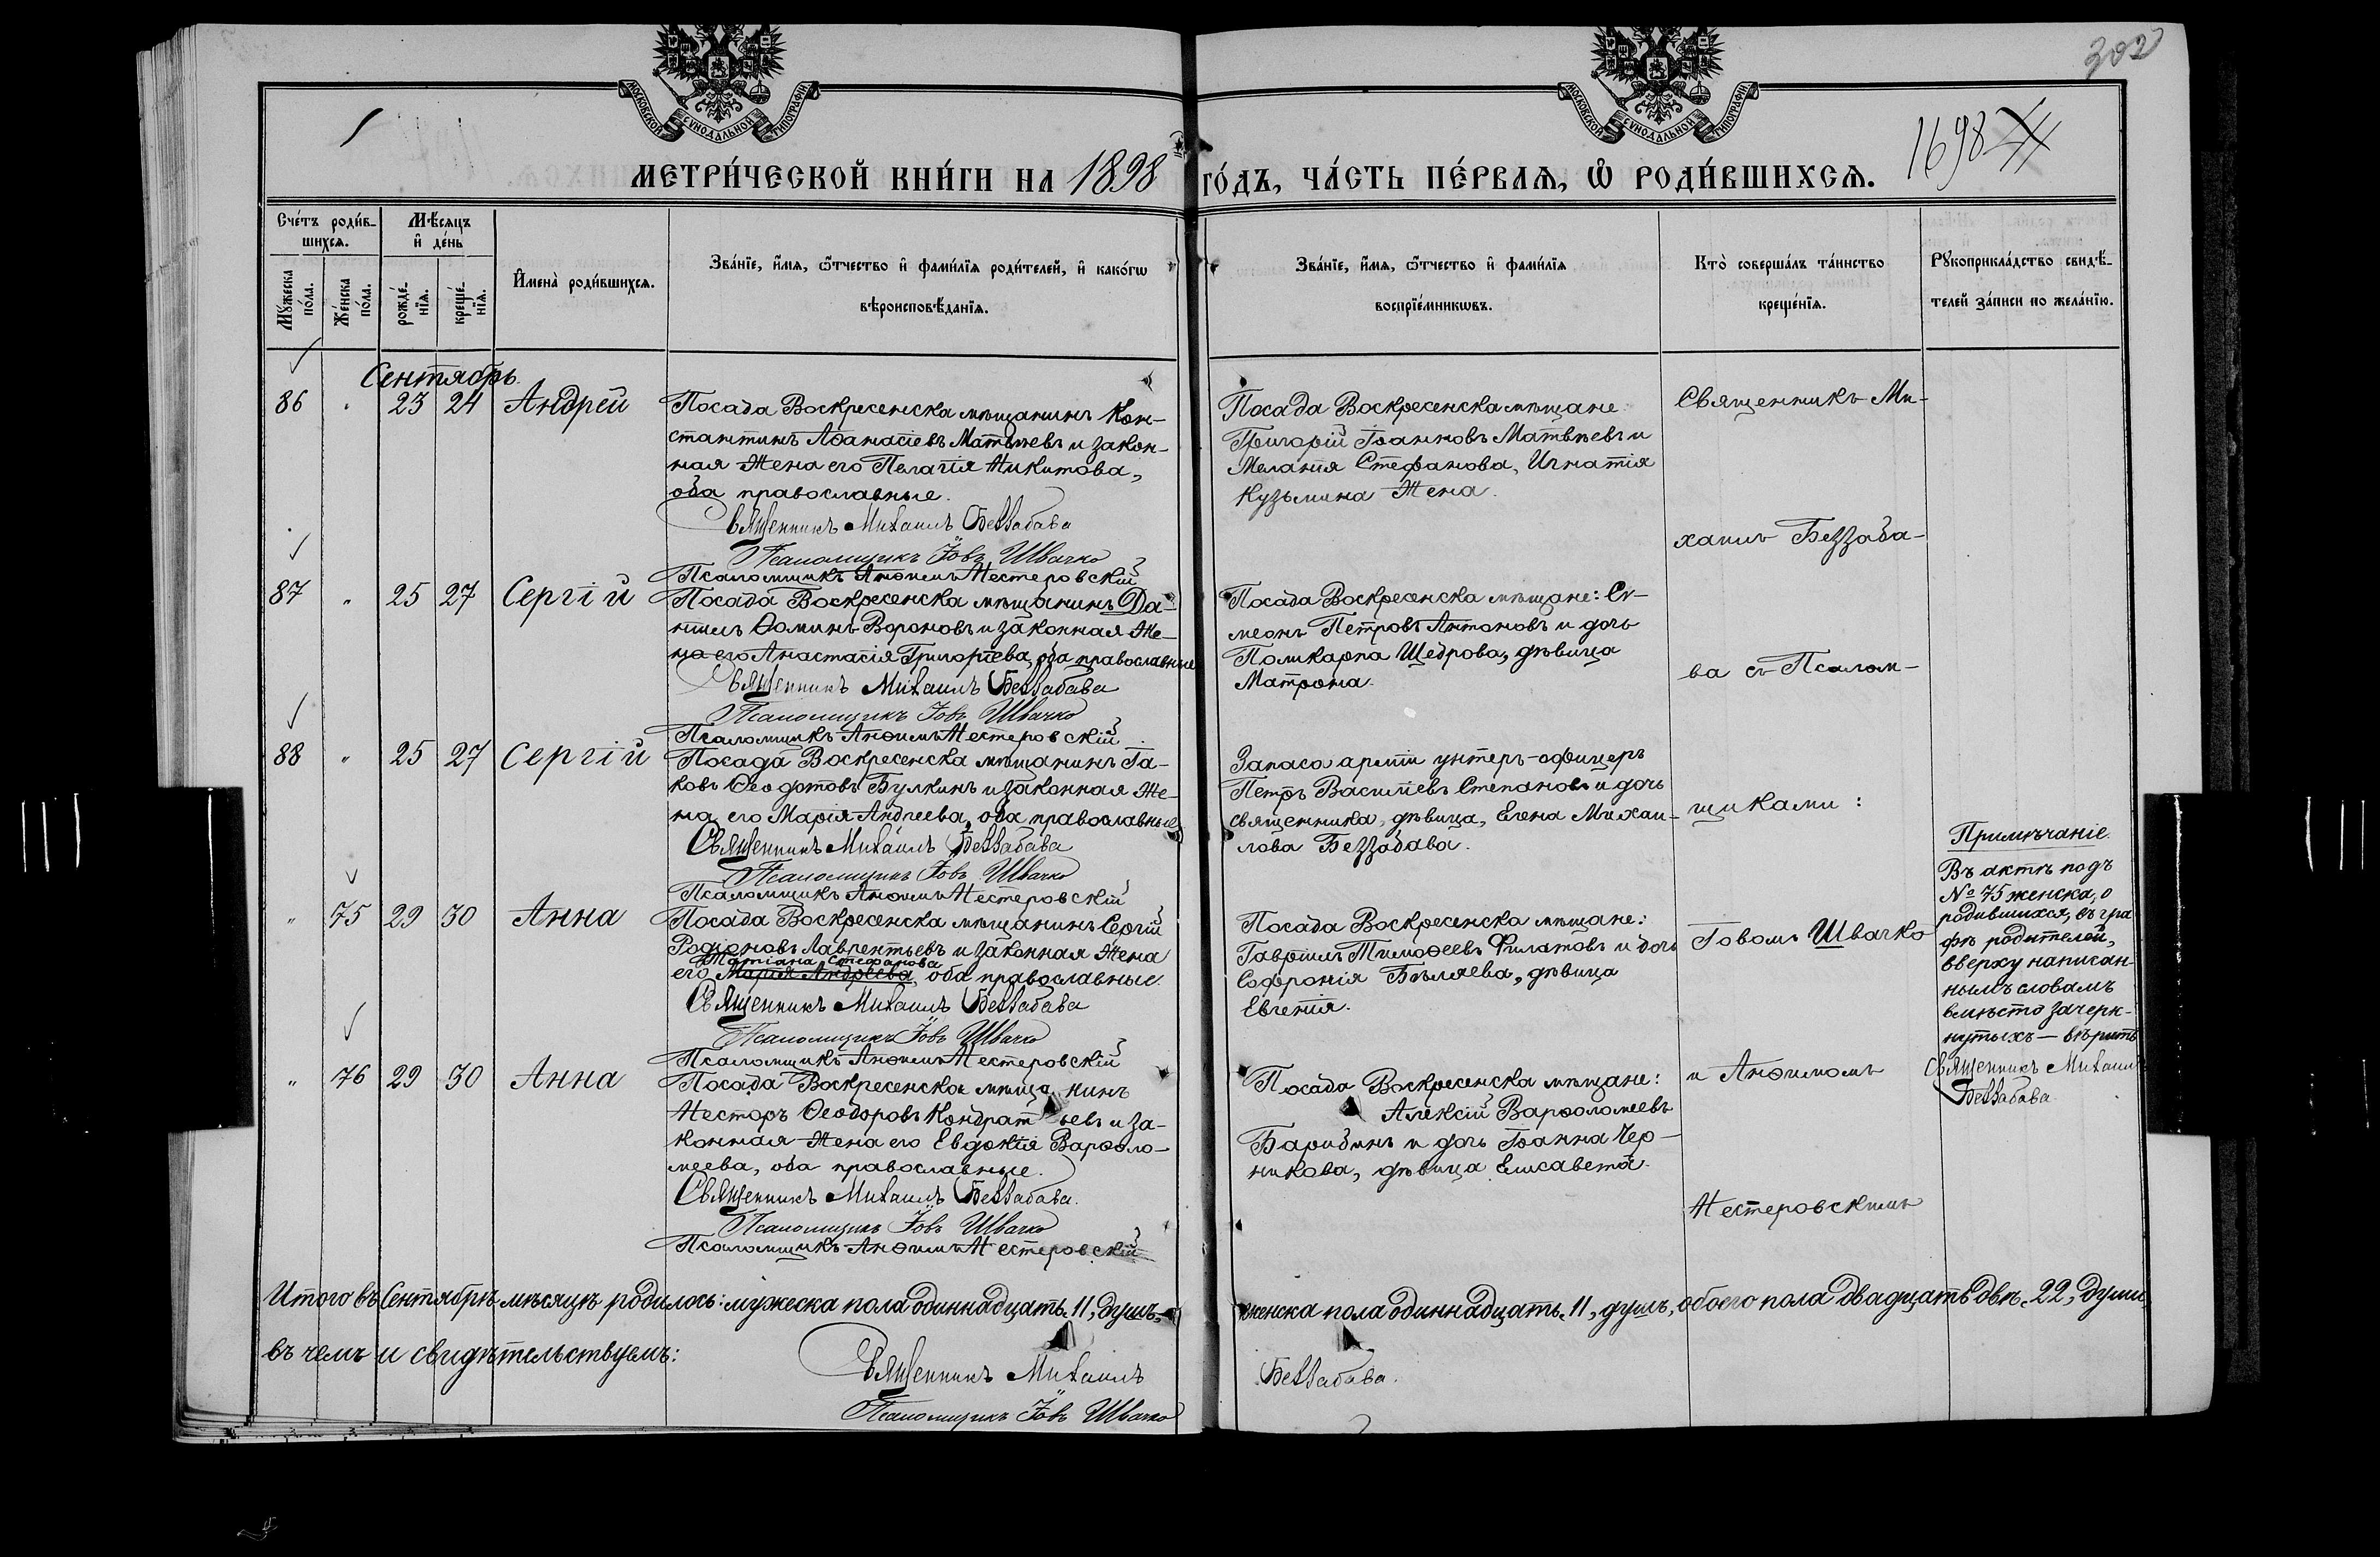 302
МОСКОВСКОЙ СѴНОДАЛЬНОЙ ТИПОГРАФІИ
МОСКОВСКОЙ СѴНОДАЛЬНОЙ ТИПОГРАФІИ
МЕТРИ́ЧЕСКОЙ КНИ́ГИ НА 1898
ГО́ДЪ, ЧА́СТЬ ПЕ́РВАѦ, Ѡ҆ РОДИ́ВШИХСѦ.
1698
Сче́тъ роди́в-
шихсѧ.
Мꙋ́жеска
по́ла.
Же́нска
по́ла.
Мѣ́сяцъ
и҆ де́нь
рожде́-
нїѧ.
креще́-
нїѧ.
И҆мена̀ роди́вшихсѧ.
Зва́нїе, и҆́мѧ, ѻ҆́тчество и҆ фами́лїѧ роди́телей, и҆ како́гѡ
вѣроисповѣ́данїѧ.
Зва́нїе, и҆́мѧ, ѻ҆́тчество и҆ фами́лїѧ
воспрїе́мникѡвъ.
Кто̀ соверша́лъ та́инство
креще́нїѧ.
Рꙋкоприкла́дство свидѣ́-
телей за́писи по жела́нїю.
Сентябрь.
86 " 23 24 Андрей
Посада Воскресенска мѣщанинъ Кон-
стантинъ Аѳанасіевъ Матвѣевъ и закон-
ная жена его Пелагія Никитова,
оба православные.
Священникъ Михаилъ Беззабава
Псаломщикъ Іовъ Швачко
Псаломщикъ Анѳимъ Нестеровскій
Посада Воскресенска мѣщане
Григорій Іоанновъ Матвѣевъ и
Меланія Стефанова, Игнатія
Кузьмина жена.
Священникъ Ми-
хаилъ Беззаба-
87 " 25 27 Сергій
Посада Воскресенска мѣщанинъ Да-
ніилъ Ѳоминъ Вороновъ и законная же-
на его Анастасія Григоріева, оба православные
Священникъ Михаилъ Беззабава
Псаломщикъ Іовъ Швачко
Псаломщикъ Анѳимъ Нестеровскій
Посада Воскресенска мѣщане: Си-
меонъ Петровъ Антоновъ и дочь
Поликарпа Щедрова, дѣвица
Матрона.
ва съ Псалом-
88 " 25 27 Сергій
Посада Воскресенска мѣщанинъ Іа-
ковъ Ѳеодотовъ Булкинъ и законная же-
на его Марія Андреева, оба православные
Священникъ Михаилъ Беззабава
Псаломщикъ Іовъ Швачко
Псаломщикъ Анѳимъ Нестеровскій
Запаса арміи унтеръ-офицеръ
Петръ Василіевъ Степановъ и дочь
священника, дѣвица, Елена Михаи-
лова Беззабава.
щиками:
" 75 29 30 Анна
Посада Воскресенска мѣщанинъ Сергій
Родіоновъ Лаврентьевъ и законная жена
Татіана Стефанова
его Марія Андреева, оба православные.
Священникъ Михаилъ Беззабава
Псаломщикъ Іовъ Швачко
Псаломщикъ Анѳимъ Нестеровскій
Посада Воскресенска мѣщане:
Гавріилъ Тимоѳеевъ Филатовъ и дочь
Софронія Бѣляева, дѣвица
Евгенія.
Іовомъ Швачко
Примѣчаніе.
Въ актѣ подъ
№ 75 женска, о
родившихся, въ гра
фѣ родителей,
вверху написан-
нымъ словамъ
вмѣсто зачерк-
нутыхъ — вѣрить
Священникъ Михаилъ
Беззабава.
" 76 29 30 Анна
Посада Воскресенска мѣща нинъ
Несторъ Ѳеодоровъ Кондрат ьевъ и за-
конная жена его Евдокія Варѳоло-
меева, оба православные.
Священникъ Михаилъ Беззабава.
Псаломщикъ Іовъ Швачко
Псаломщикъ Анѳимъ Нестеровскій
Посада Воскресенска мѣщане:
Алексій Варѳоломеевъ
Барибинъ и дочь Іоанна Чер-
никова, дѣвица Елисавета.
и Анѳимомъ
Нестеровскимъ
Итого въ Сентябрѣ мѣсяцѣ родилось: мужеска пола одиннадцать, 11, душъ,
женска пола одиннадцать, 11, душъ, обоего пола двадцать двѣ, 22, души,
въ чемъ и свидѣтельствуемъ:
Священникъ Михаилъ
Беззабава.
Псаломщикъ Іовъ Швачко